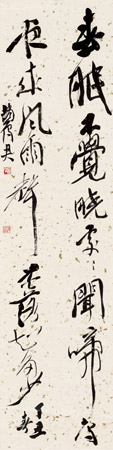 春眠不覺曉處〻聞啼鳥
夜來風雨聲花落知多少
丁丑
春